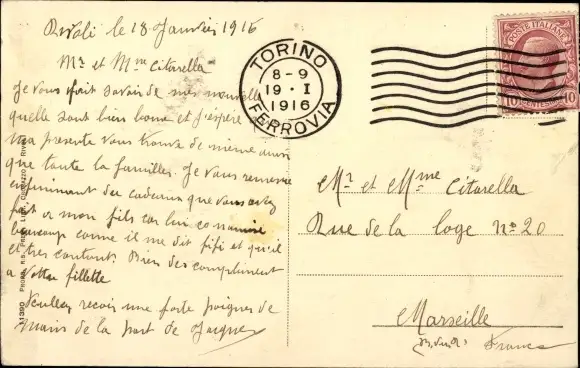 Rivoli le 18 Janvier 1916
Mr et Mme Citarella
Je vous fait savoir de mes nouvelle
quelle sont bien bonne et j'espère
ma presente vous trouve de même ainsi
que toute la familles. Je vous remercie
infiniment du cadeaux que vous avez
fait a mon fils car lui
beaucoup comme il me dit fifi et qu'il
et tres contant. Bien des compliment
a votre fillette
Veuillez recois une forte poignes de
mains de la part de Jacques
11390
TORINO
8-9
19·I
1916
FERROVIA
POSTE ITALIANE
10 CENTESIMI 10
Mr et Mme Citarella
Rue de la loge No 20
Marseille
France